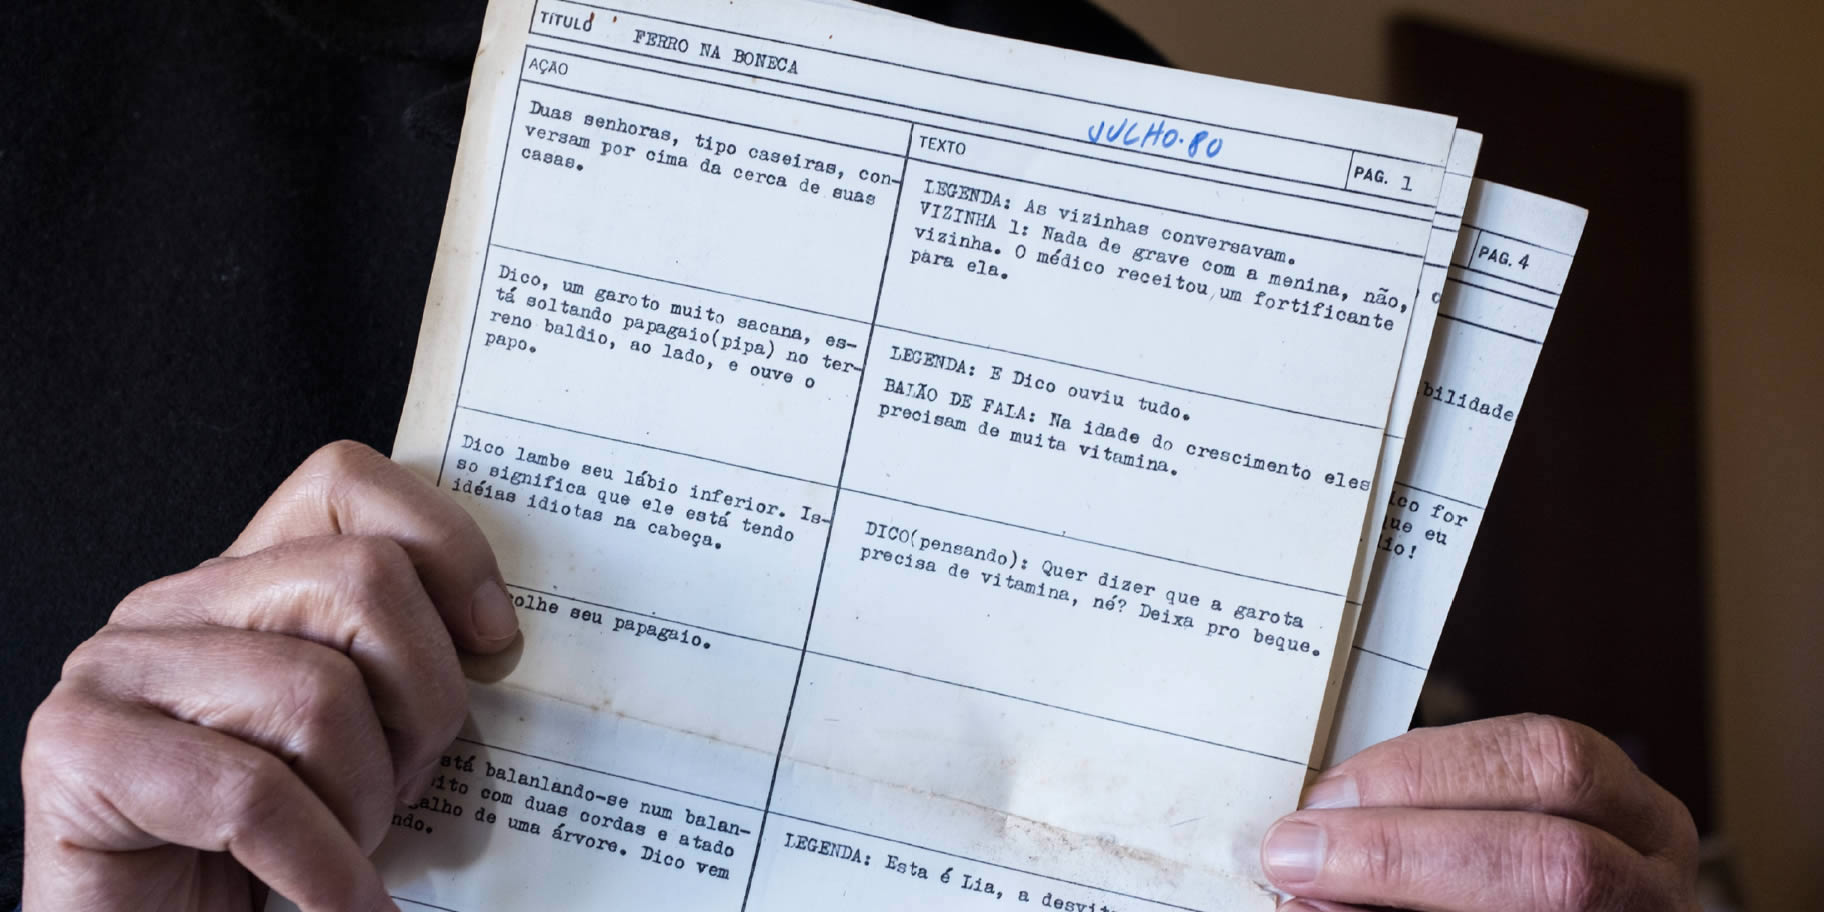 TÍTULO FERRO NA BONECA
JULHO.80
AÇÃO
TEXTO
PAG. 1
Duas senhoras, tipo caseiras, con-
versam por cima da cerca de suas
casas.
LEGENDA: As vizinhas conversavam.
VIZINHA 1: Nada de grave com a menina, não,
vizinha. O médico receitou um fortificante
para ela.
Dico, um garoto muito sacana, es-
tá soltando papagaio(pipa) no ter-
reno baldio, ao lado, e ouve o
papo.
LEGENDA: E Dico ouviu tudo.
BALÃO DE FALA: Na idade do crescimento eles
precisam de muita vitamina.
Dico lambe seu lábio inferior. Is-
so significa que ele está tendo
idéias idiotas na cabeça.
DICO(pensando): Quer dizer que a garota
precisa de vitamina, né? Deixa pro beque.
olhe seu papagaio.
stá balanlando-se num balan-
ito com duas cordas e atado
galho de uma árvore. Dico vem
ndo.
LEGENDA: Esta é Lia, a desvit
PAG. 4
bilidade
ico for
ue eu
io!